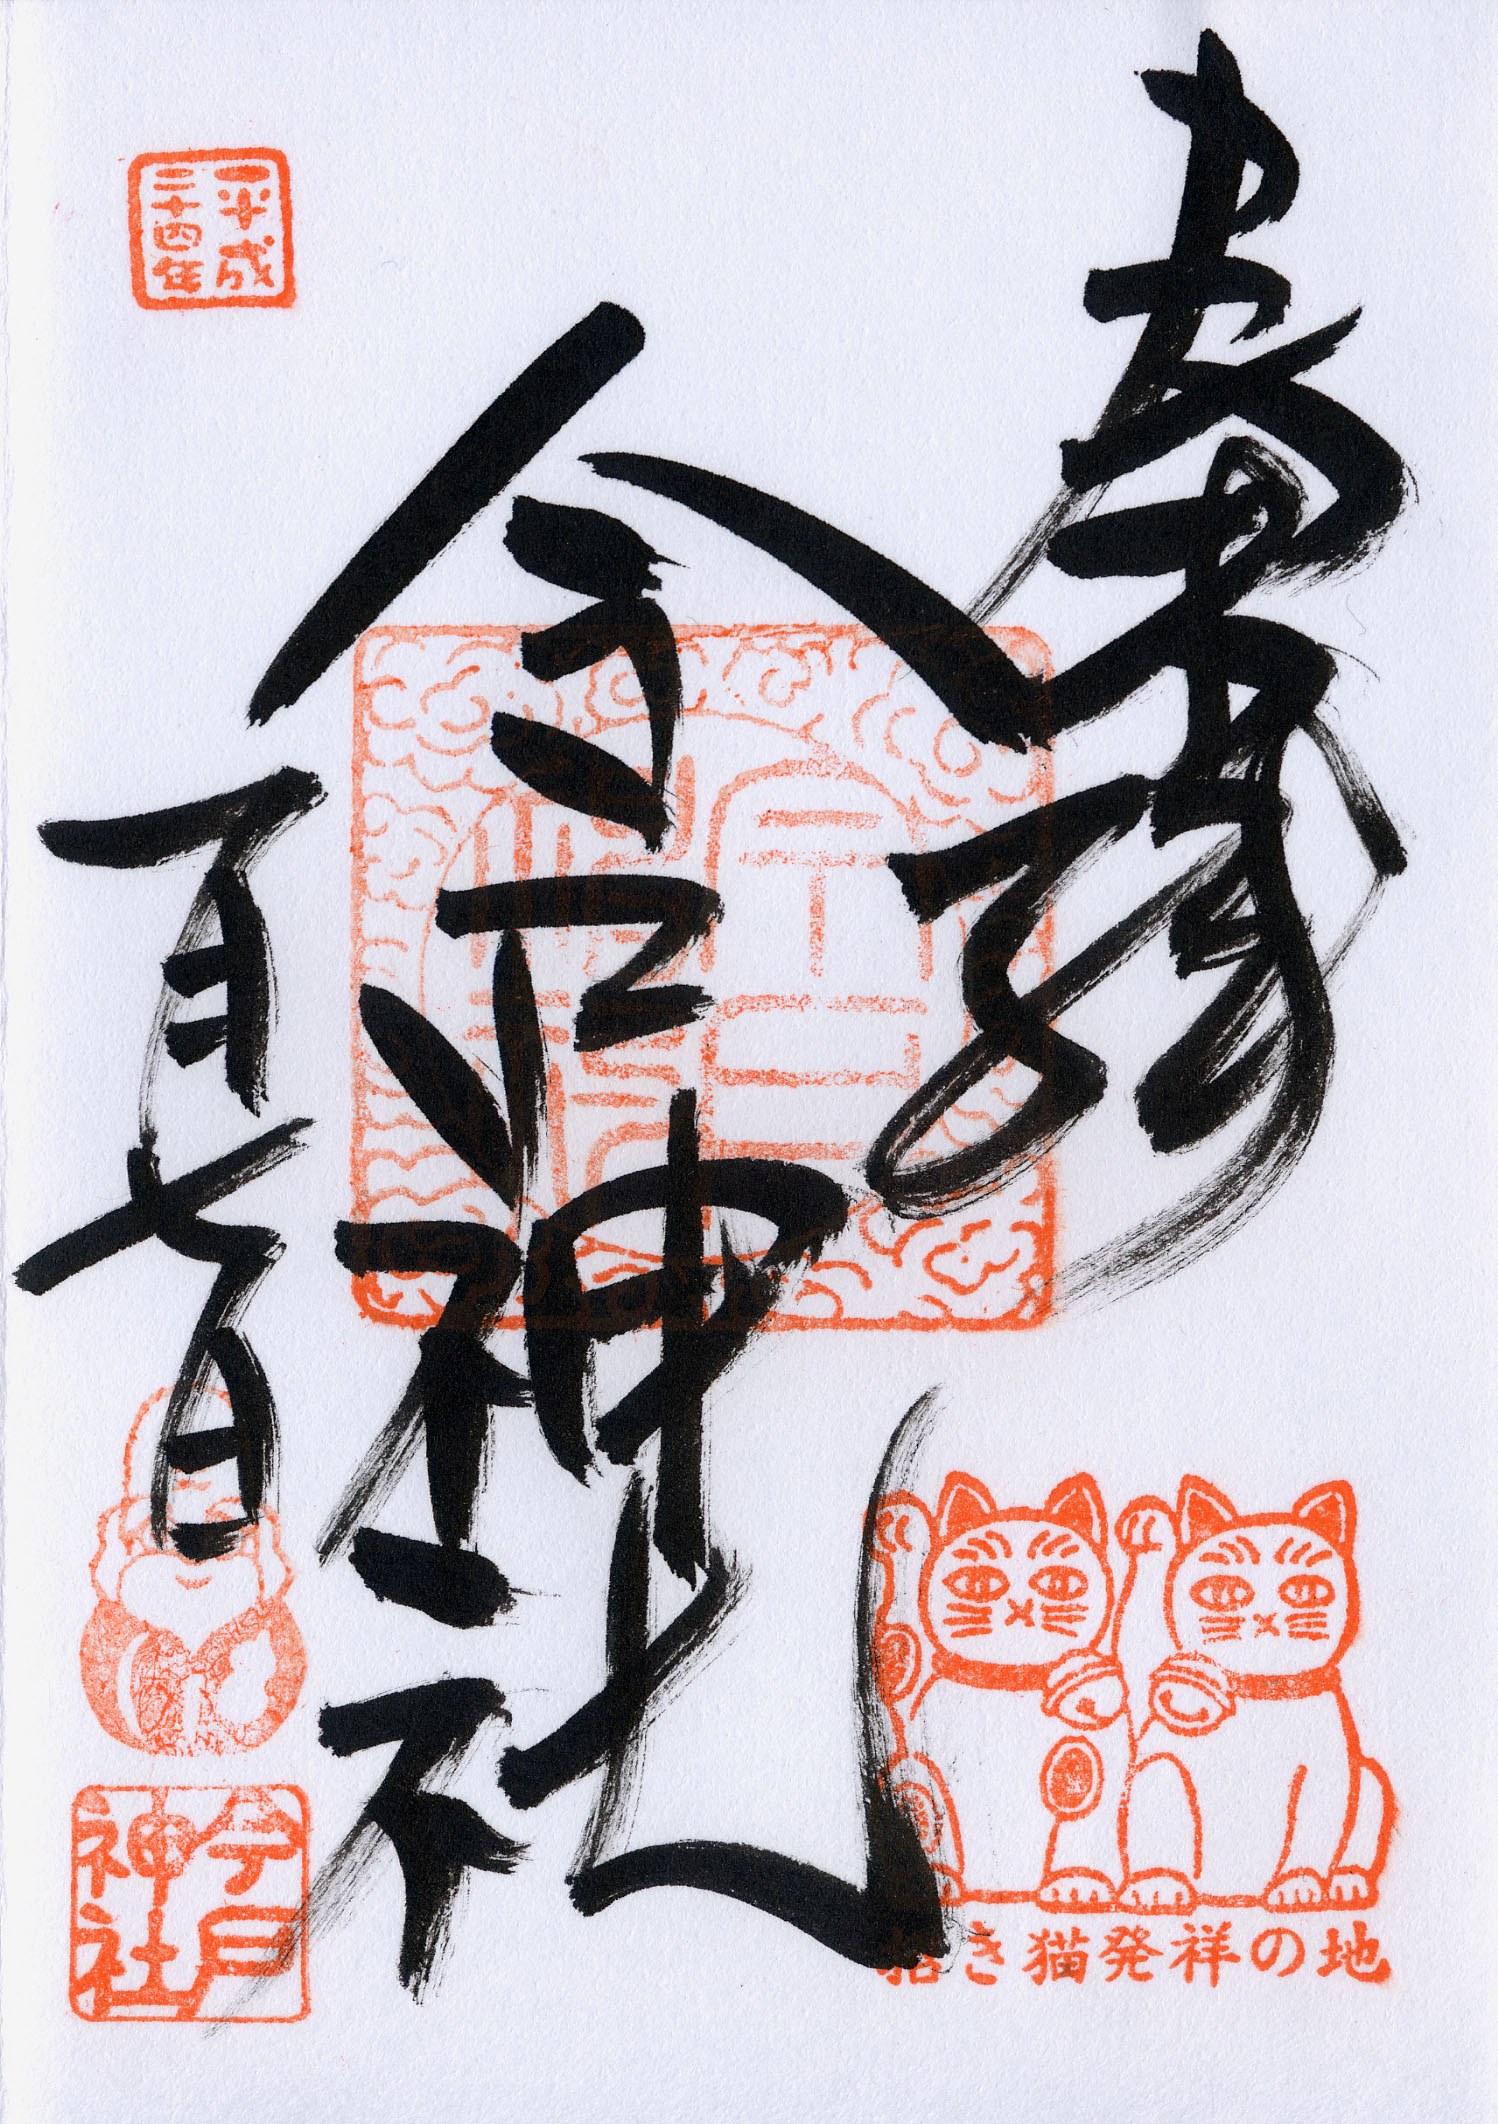 奉拝
平成
二十四年
今戸神社
一月七日
招き猫発祥の地
今戸
神社